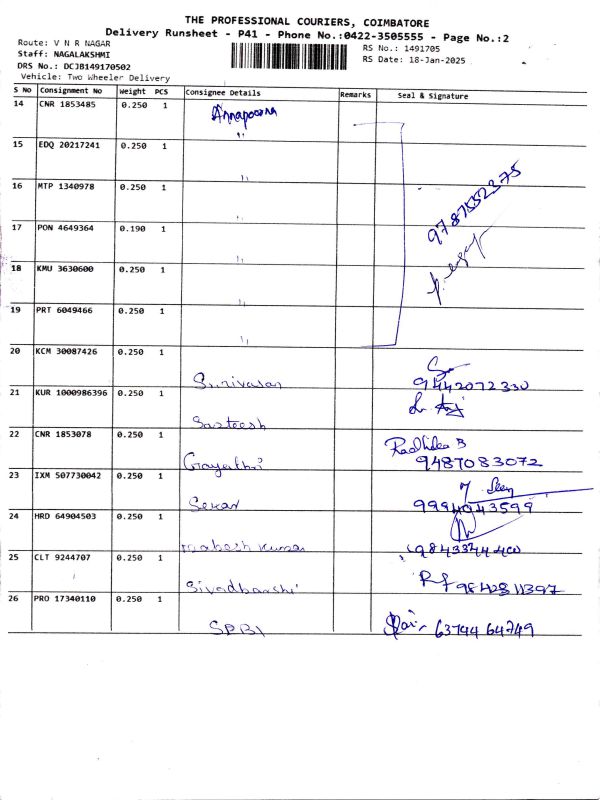 THE PROFESSIONAL COURIERS, COIMBATORE
Delivery Runsheet - P41 - Phone No.:0422-3505555 - Page No.:2
Route: V N R NAGAR
Staff: NAGALAKSHMI
DRS No.: DCJB149170502
Vehicle: Two Wheeler Delivery
RS No.: 1491705
RS Date: 18-Jan-2025
S No Consignment No Weight PCS Consignee Details Remarks Seal & Signature
14 CNR 1853485 0.250 1 Annapoorna
"
15 EDQ 20217241 0.250 1
"
16 MTP 1340978 0.250 1
"
17 PON 4649364 0.190 1
"
18 KMU 3630600 0.250 1
"
19 PRT 6049466 0.250 1
"
9787532375
20 KCM 30087426 0.250 1
Srinivasan 9442072330
21 KUR 1000986396 0.250 1
Sasteesh
22 CNR 1853078 0.250 1 Radhika B
Gayathri 9487083072
23 IXM 507730042 0.250 1
Sekar 9994043599
24 HRD 64904503 0.250 1
Mahesh Kumar 9843344400
25 CLT 9244707 0.250 1
Sivadharshi 9842811397
26 PRO 17340110 0.250 1
SPBI 63744 64749